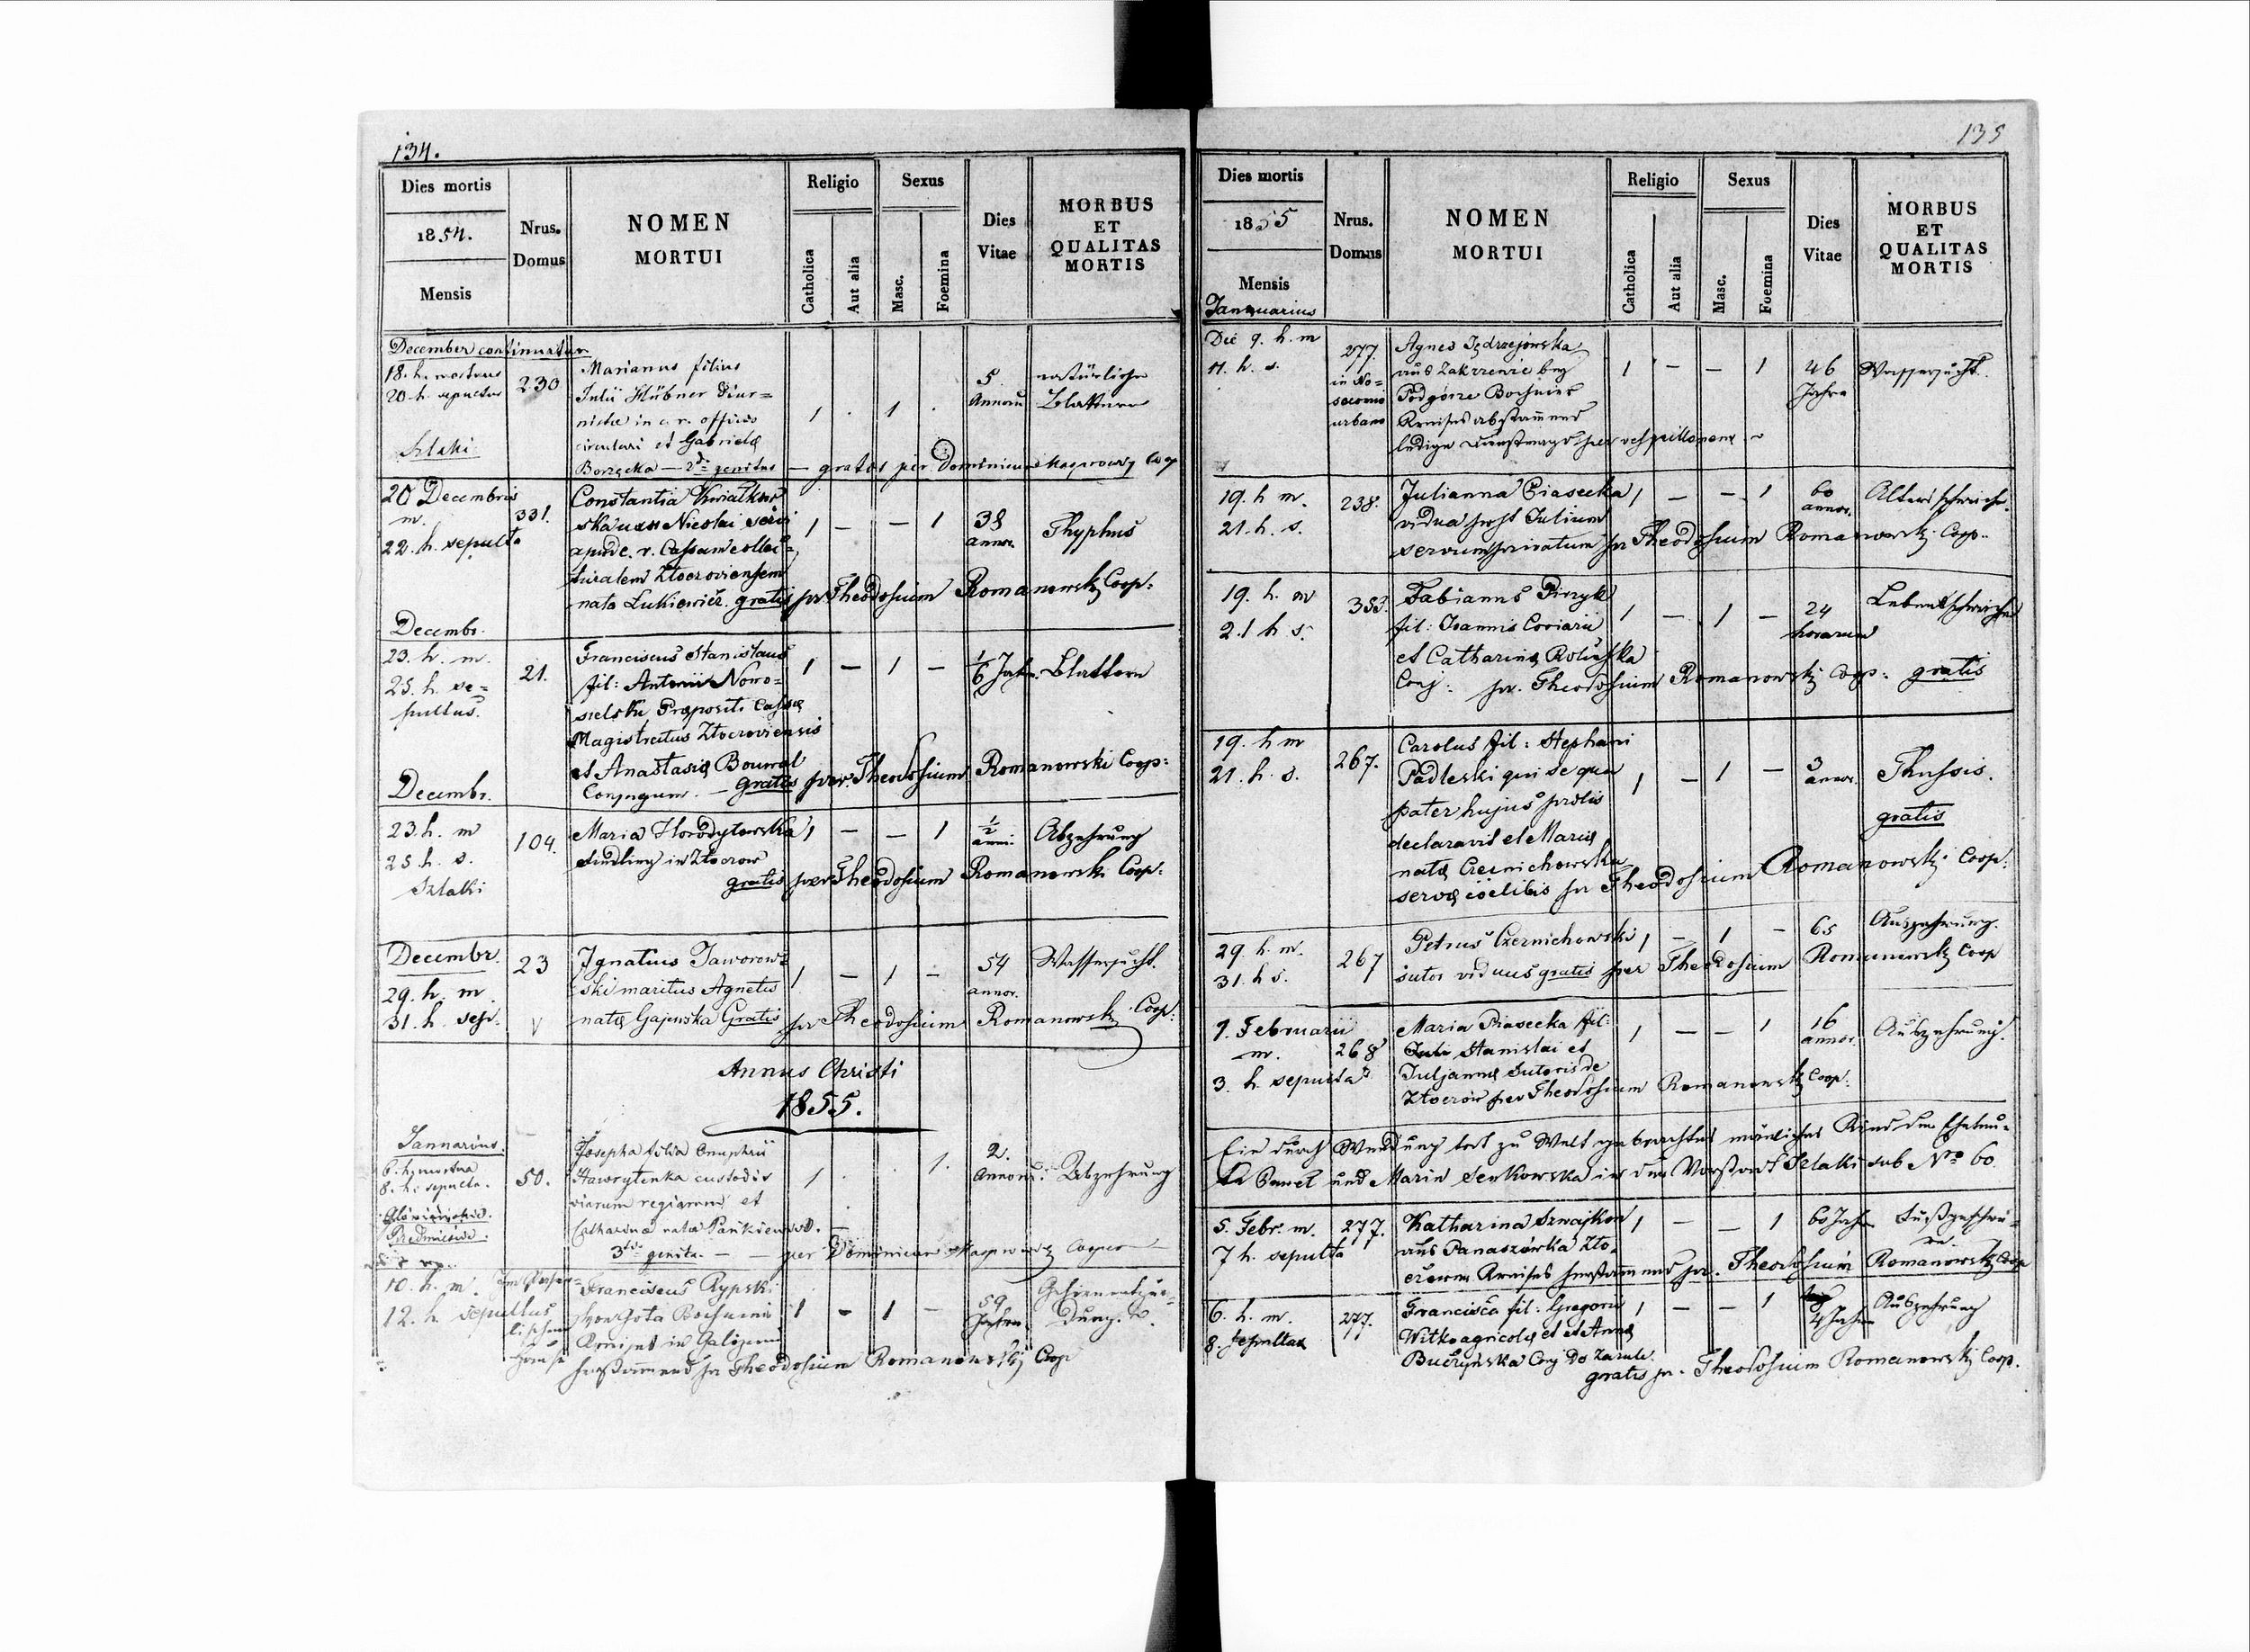 134.
Dies mortis
1854.
Mensis
Nrus.
Domus
NOMEN
MORTUI
Religio
Catholica
Aut alia
Sexus
Masc.
Foemina
Dies
Vitae
MORBUS
ET
QUALITAS
MORTIS
December continuatur
18. h. mortuus
20. h. sepultus
Szlaki
230
Marianus filius
Julii Hübner Diur=
nistae in c. r. officio
circulari et Gabrielae
Borzęcka — 2do genitus — gratos per Dominicum Kasprowicz Coop
1 . 1 .
5.
Annorum
natürliche
Blattern
20 Decembris
m.
22. h. sepulta
331.
Constantia Kwiatkow
ska uxor Nicolai servi
apud c. r. Cassam collec=
turalem Złocroviensem
nata Łukiewicz. gratis per Theodosium Romanowski Coop:
1 — — 1
38
annor.
Thyphus
Decembr.
23. h. m.
25. h. se=
pultus.
21.
Franciscus Stanislaus
fil: Antonii Nowo=
sielski Praepositi Cassae
Magistratus Złocroviensis
et Anastasiae Bouwal
Conjugum. — Gratis per Theodosium Romanowski Coop:
1 — 1 —
1/6 Jahr.
Blattern
Decembr.
23. h. m
25. h. s.
Szlaki
104.
Maria Horodyłowska
findling in Złocrow
gratis per Theodosium Romanowski Coop:
1 — — 1
1/2
anni.
Abzehrung
Decembr.
29. h. m.
31. h. sep.
23
Ignatius Jaworow=
ski maritus Agnetis
natae Gajewska Gratis per Theodosium Romanowski Coop:
1 — 1 —
54
annor.
Wassersucht.
Annus Christi
1855.
Januarius.
6. h. mortua
8. h. sepulta.
50.
Josepha filia Onuphrii
Hawrytenka custodis
viarum regiarum et
Catharinae natae Pankiewicz. —
3tio genita. — — per Dominicum Kasprowicz Cooper
1 . . 1.
2.
Annorum.
Abzehrung
10. h. m.
12. h. sepultus
Franciscus Rypski
von Gota Bochnia
Kreises in Galizien
herstammend per Theodosium Romanowski Coop
1 — 1 —
59
Jahre.
Gehirnentzün=
dung.
135
Dies mortis
1855
Mensis
Januarius
Nrus.
Domus
NOMEN
MORTUI
Religio
Catholica
Aut alia
Sexus
Masc.
Foemina
Dies
Vitae
MORBUS
ET
QUALITAS
MORTIS
Die 9. h. m
11. h. s.
277.
in No=
socomio
urbano
Agnes Jędrzejowska
aus Zakrzewic bey
Podgórze Bochnier
Kreises abstammend
ledige Dienstmagd per vespillonem
1 — — 1
46
Jahre
Wassersucht.
19. h m.
21. h. s.
238.
Julianna Piasecka
vidua post Julium
servum privatum per Theodosium Romanowski Coop.
1 — — 1
60
annor.
Altersschwäche.
19. h. m
21 h s.
353.
Fabianus
fil: Joannis Coriarii
et Catharinae
Conj: per. Theodosium Romanowski Coop: gratis
1 — 1 —
24
horarum
Lebensschwäche
19. h m
21. h. s.
267.
Carolus fil: Stephani
Padleski qui se qua
pater hujus prolis
declaravit et Mariae
natae Czernichowska
servae coelibis per Theodosium Romanowski Coop:
1 — 1 —
3
annor.
Thussis.
gratis
29. h. m.
31. h s.
267
Petrus Czernichowski
sutor viduus gratis per Theodosium Romanowski Coop
1 — 1 —
65
Auszehrung.
1. Februarii
m.
3. h. sepulta
268
Maria Piasecka fil:
Stanislai et
Juljannae Sutoris de
Złoczow per Theodosium Romanowski Coop.
1 — — 1
16
annor.
Auszehrung.
Ein durch Wendung todt zu Welt gebrachtes männliches Kind der Eheleu=
te Pawel und Maria Senkowska in der Vorstadt Szlaki sub Nro 60
5. Febr. m.
7 h. sepulta
277.
Katharina Sznajkow
aus Panaszówka Zło=
czower Kreises herstammend per. Theodosium Romanowski Coop
1 — — 1
60 Jahr
6. h. m.
8. sepulta
277.
Francisca fil: Gregorii
Witko agricolae et Annae
Buczyńska Conj de Zazule.
gratis per. Theodosium Romanowski Coop.
1 — — 1
4 Jahre
Auszehrung